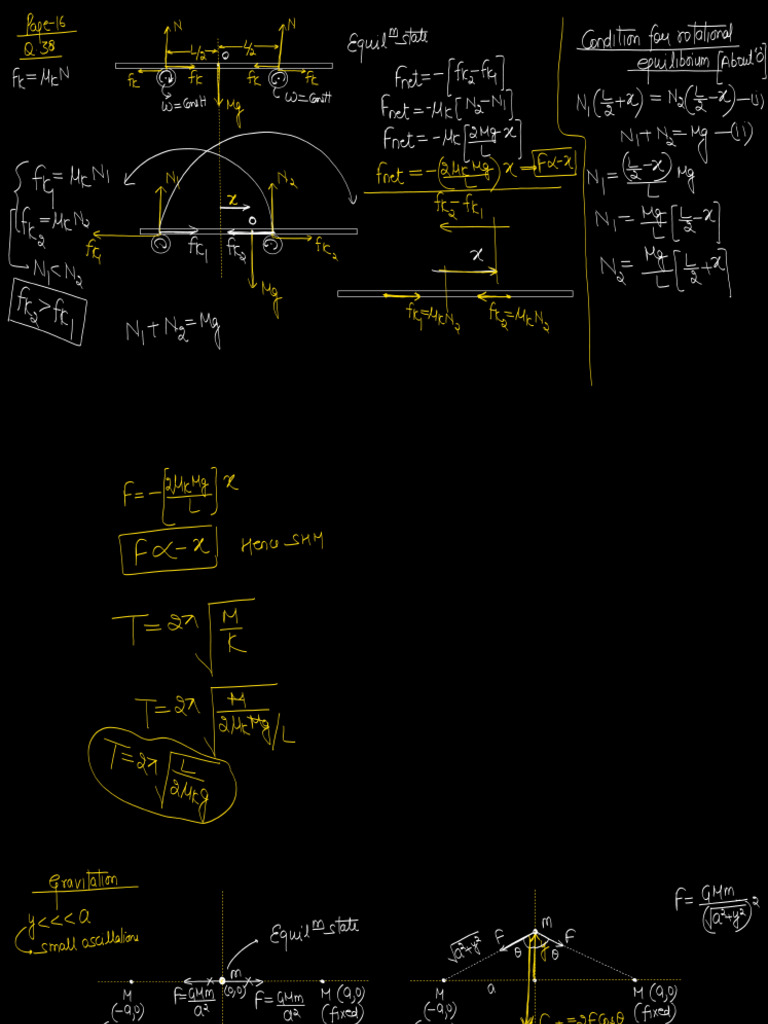 Page-16
Q 38
fk = μkN
N
N
L/2
L/2
O
fk
fk
fk
fk
ω=const
ω=const
Mg
Equil^m state
Fnet = -[fk2 - fk1]
Fnet = -μk[N2 - N1]
Fnet = -μk[2Mg x / L]
Fnet = -(2μkMg / L) x → F∝-x
fk2 - fk1
x
fk1 = μkN2
fk2 = μkN2
Condition for rotational
equilibrium [About 'O']
N1(L/2 + x) = N2(L/2 - x) —(i)
N1 + N2 = Mg —(ii)
N1 = (L/2 - x) / L Mg
N1 = Mg/L [L/2 - x]
N2 = Mg/L [L/2 + x]
fk1 = μkN1
fk2 = μkN2
N1 < N2
fk2 > fk1
N1
N2
x
O
fk1
fk1
fk2
fk2
Mg
N1 + N2 = Mg
F = -[2μkMg / L] x
F∝-x Hence SHM
T = 2π√(M/K)
T = 2π√(M / 2μkMg/L)
T = 2π√(L / 2μkg)
Gravitation
y<<<a
small oscillations
Equil^m state
m
(0,0)
F = GMm/a²
F = GMm/a²
M
(-a,0)
M (a,0)
(fixed)
F = GMm / (√a²+y²)²
m
F
F
θ
θ
y
√a²+y²
a
M
(-a,0)
M (a,0)
(fixed)
=2Fcosθ